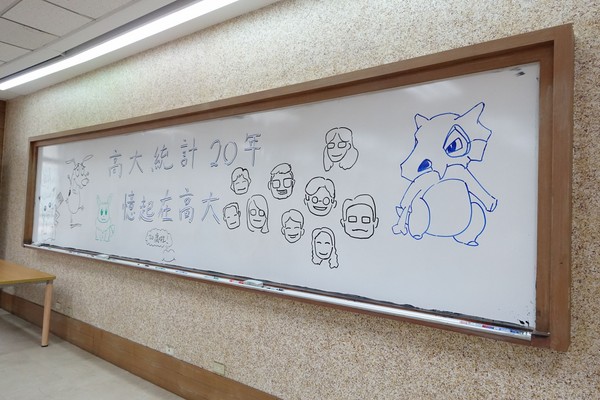 高大統計20年
憶起在高大